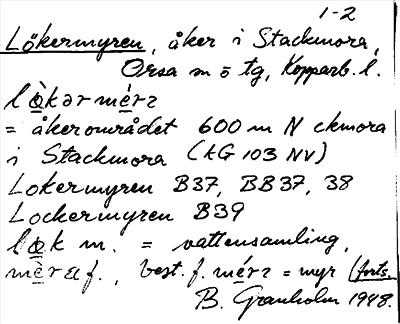 1-2
Lökermyren, åker i Stackmora,
Orsa sn ö tg, Kopparb. l.
lɑ̀kərmérɪ
= åkerområdet 600 m N ckmora
i Stackmora (kG 103 NV)
Lokermyren B37, BB37, 38
Lockermyren B39
m. = vattensamling,
best. f. = myr (forts.
B. Granholm 1948.